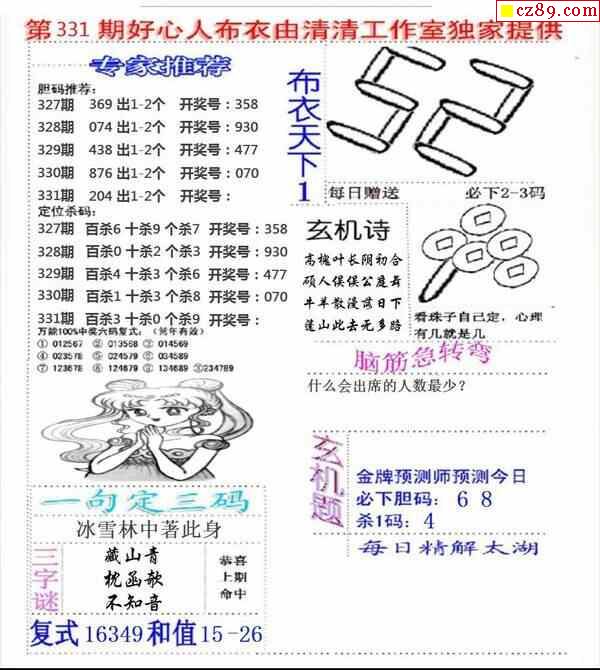 cz89.com
第331期好心人布衣由清清工作室独家提供
专家推荐
胆码推荐:
327期 369 出1-2个 开奖号:358
328期 074 出1-2个 开奖号:930
329期 438 出1-2个 开奖号:477
330期 876 出1-2个 开奖号:070
331期 204 出1-2个 开奖号:
定位杀码:
327期 百杀6 十杀9 个杀7 开奖号:358
328期 百杀0 十杀2 个杀3 开奖号:930
329期 百杀4 十杀3 个杀6 开奖号:477
330期 百杀1 十杀3 个杀8 开奖号:070
331期 百杀3 十杀0 个杀9 开奖号:
万能100%中奖六码复式:(常年有效)
① 012567 ② 013568 ③ 014569
④ 023578 ⑤ 024579 ⑥ 034589
⑦ 123678 ⑧ 124679 ⑨ 134689 ⑩234789
一句定三码
冰雪林中著此身
三字谜
藏山青
枕函欹
不知音
恭喜
上期
命中
复式 16349 和值 15-26
布衣天下1
52
每日赠送 必下2-3码
玄机诗
高槐叶长阴初合
硕人俣俣公庭舞
牛羊散漫落日下
蓬山此去无多路
看珠子自己定,心理
有几就是几
脑筋急转弯
什么会出席的人数最少?
玄机题
金牌预测师预测今日
必下胆码: 6 8
杀1码: 4
每日精解太湖